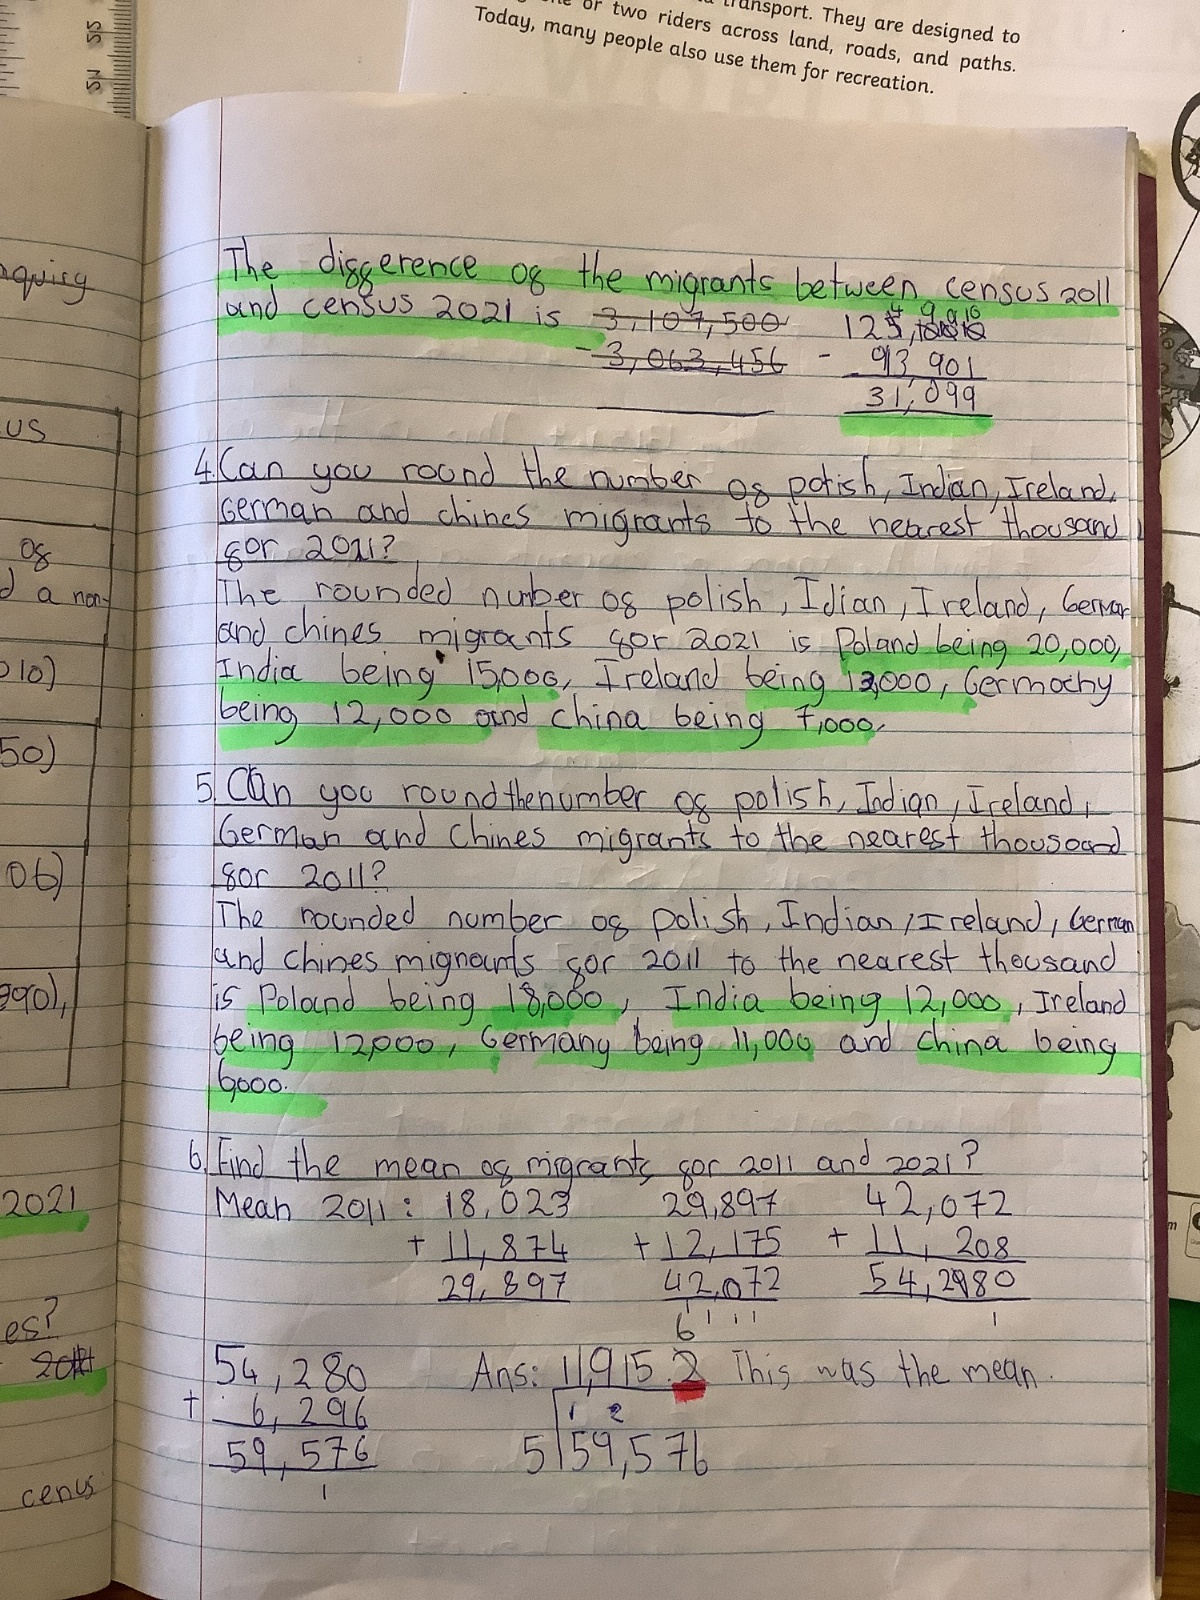 transport. They are designed to
or two riders across land, roads, and paths.
Today, many people also use them for recreation.
The difference of the migrants between census 2011
and census 2021 is 3,107,500 125,000
- 3,063,456 - 93 901
31,099
4. Can you round the number of polish, Indian, Ireland,
German and chines migrants to the nearest thousand
for 2021?
The rounded number of polish, Idian, Ireland, German
and chines migrants for 2021 is Poland being 20,000,
India being 15,000, Ireland being 13,000, Germochy
being 12,000 and china being 7,000,
5. Can you round the number of polish, Indian, Ireland,
German and Chines migrants to the nearest thousand
for 2011?
The rounded number of polish, Indian, Ireland, German
and chines migrants for 2011 to the nearest thousand
is Poland being 18,000, India being 12,000, Ireland
being 12,000, Germany being 11,000 and china being
6000.
6. Find the mean of migrants for 2011 and 2021?
Mean 2011: 18,023 29,897 42,072
+ 11,874 + 12,175 + 11,208
29,897 42,072 54,280
6 1 1 1 1
54,280 Ans: 11,915.2 This was the mean.
+ 6,296 1 2
59,576 5 59,576
1
nquiry
us
of
d a non-
010)
50)
06)
890),
2021
es?
cenus
55
54